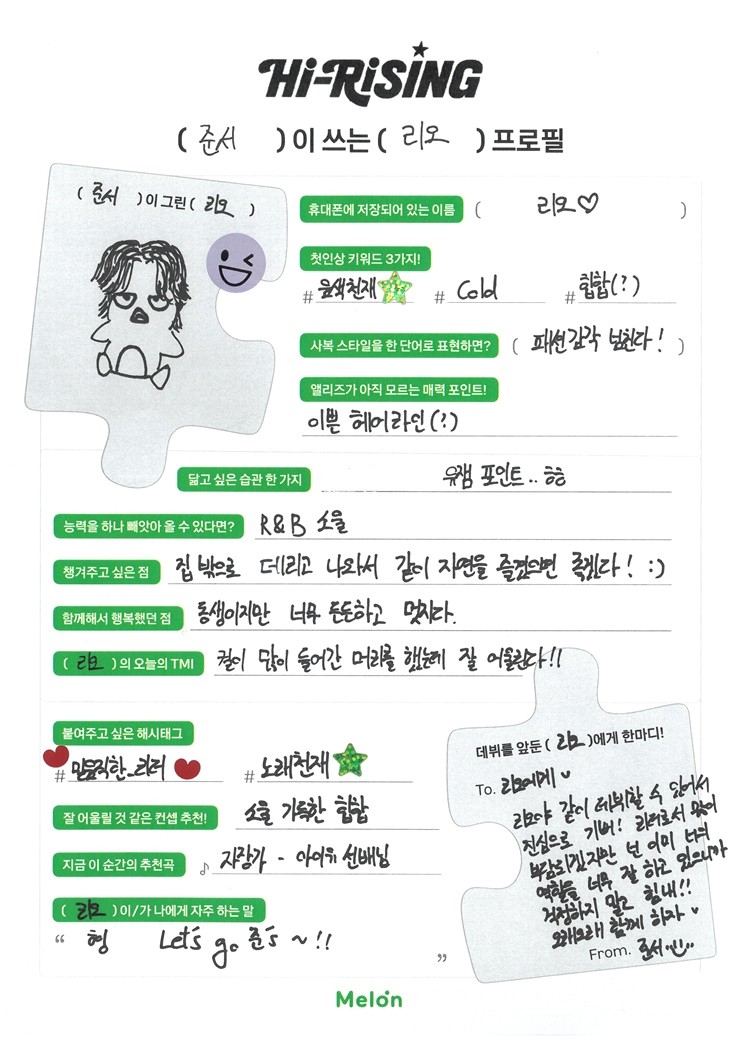 Hi-RiSING
( 준서 ) 이 쓰는 ( 리오 ) 프로필
( 준서 ) 이 그린 ( 리오 )
휴대폰에 저장되어 있는 이름 ( 리오♡ )
첫인상 키워드 3가지!
# 음색천재 # Cold # 힙합(?)
사복 스타일을 한 단어로 표현하면? ( 패션감각 넘친다! )
앨리즈가 아직 모르는 매력 포인트!
이쁜 헤어라인(?)
닮고 싶은 습관 한 가지 유잼 포인트.. ㅎㅎ
능력을 하나 빼앗아 올 수 있다면? R&B 소울
챙겨주고 싶은 점 집 밖으로 데리고 나와서 같이 자연을 즐겼으면 좋겠다! :)
함께해서 행복했던 점 동생이지만 너무 든든하고 멋지다.
( 리오 ) 의 오늘의 TMI 컬이 많이 들어간 머리를 했는데 잘 어울린다!!
붙여주고 싶은 해시태그
# 믿음직한_리더 # 노래천재
잘 어울릴 것 같은 컨셉 추천! 소울 가득한 힙합
지금 이 순간의 추천곡 ♪ 자장가 - 아이유 선배님
( 리오 ) 이/가 나에게 자주 하는 말
“ 형 Let's go 준's ~!! ”
데뷔를 앞둔 ( 리오 )에게 한마디!
To. 리오에게
리오야 같이 데뷔할 수 있어서
진심으로 기뻐! 리더로서 많이
부담되겠지만 넌 이미 너의
역할을 너무 잘 하고 있으니까
걱정하지 말고 힘내!!
오래오래 함께 하자
From. 준서
Melon